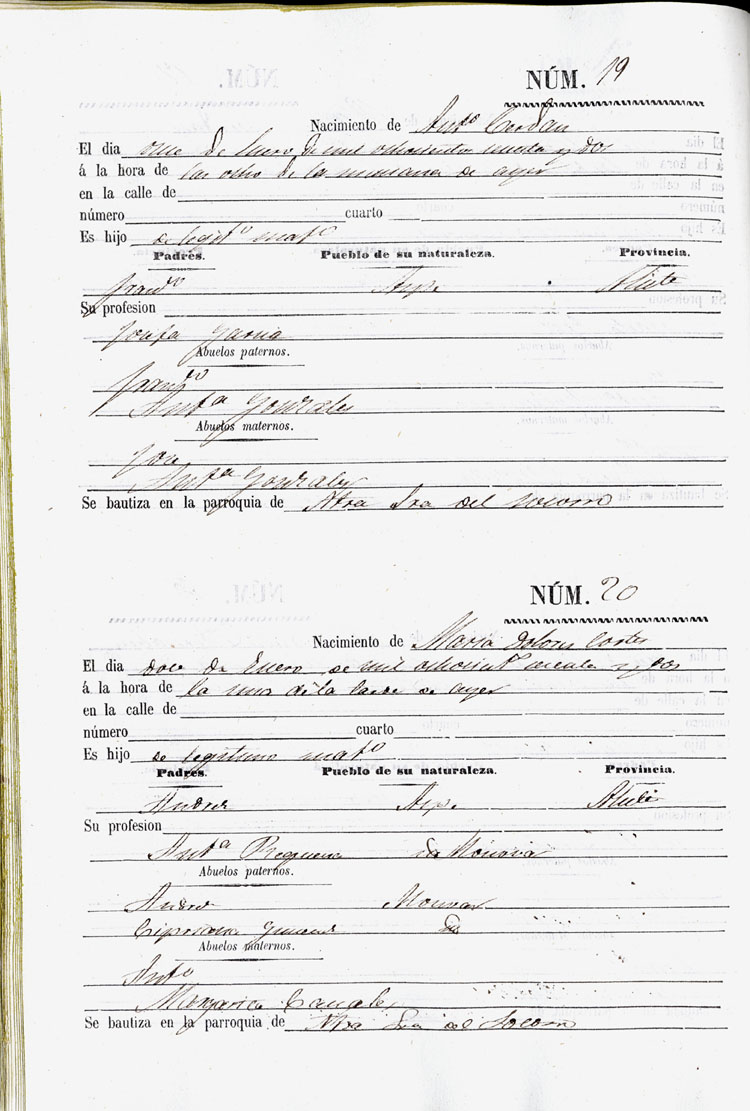 NÚM. 19
Nacimiento de Antº Cerdan
El dia once de Enero de mil ochocientos y dos
á la hora de las ocho de la mañana de ayer
en la calle de
número cuarto
Es hijo de legitº matº
Padres. Pueblo de su naturaleza. Provincia.
Franº Aspe Alicte
Su profesion
Josefa Garcia
Abuelos paternos.
Franº
Antª Gonzales
Abuelos maternos.
Jose
Antª Gonzales
Se bautiza en la parroquia de Ntra Sra del Socorro
NÚM. 20
Nacimiento de Maria Dolores Cortes
El dia doce de Enero de mil y dos
á la hora de la una de la tarde de ayer
en la calle de
número cuarto
Es hijo de legitimo matº
Padres. Pueblo de su naturaleza. Provincia.
Andres Aspe
Su profesion
Antª Requena
Abuelos paternos.
Andres Monovar
Cipriana
Abuelos maternos.
Antº
Margarita Canales
Se bautiza en la parroquia de Ntra Sra del Socorro